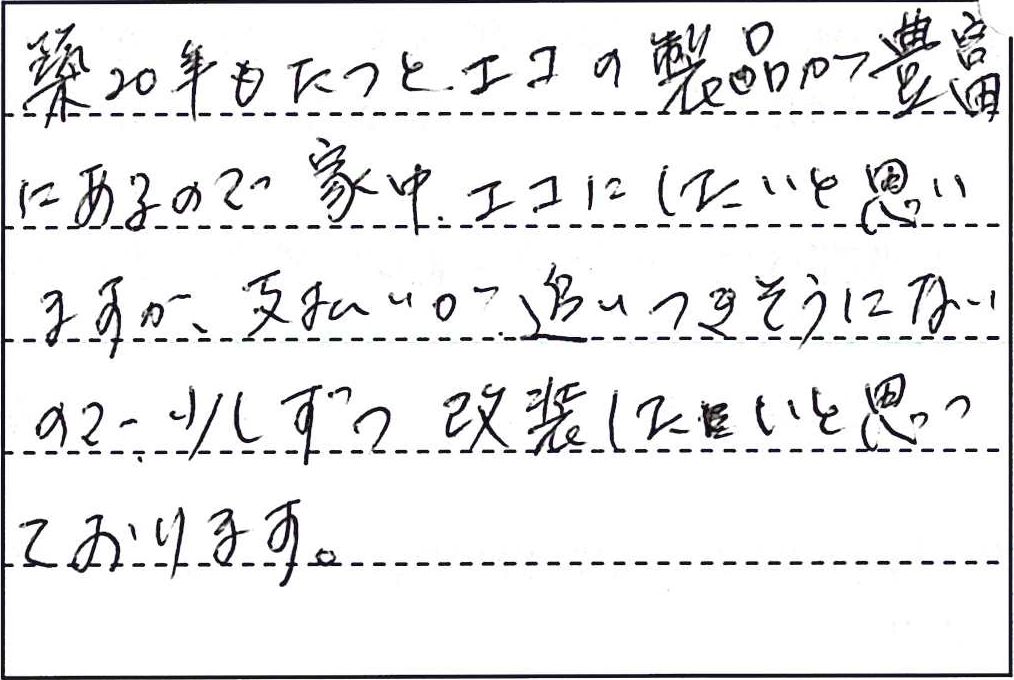 築20年もたつと、エコの製品が豊富
にあるので家中、エコにしたいと思い
ますが、支払いが追いつきそうにない
ので、少しずつ改装したいと思っ
ております。